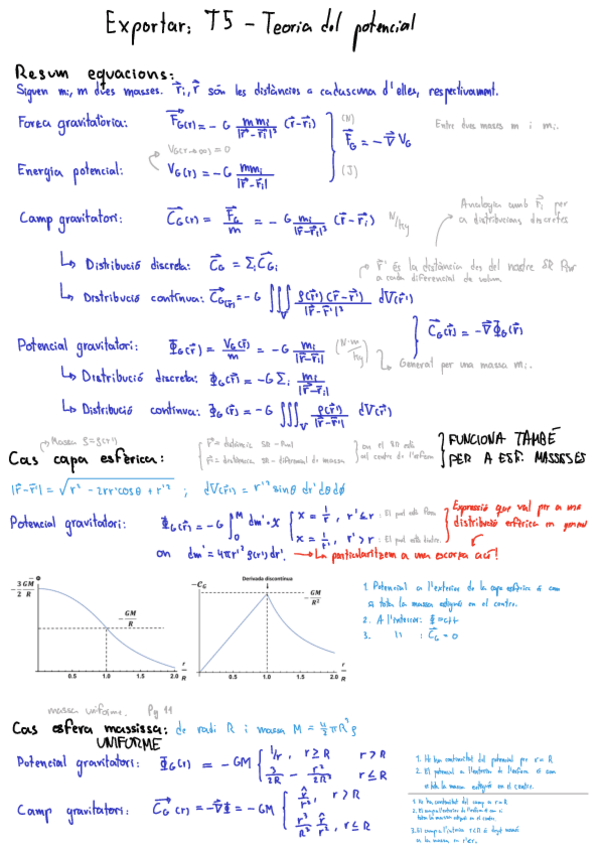 Exportar: T5 - Teoria del potencial
Resum equacions:
Siguen mᵢ, m dues masses. r⃗ᵢ, r⃗ són les distàncies a cadascuna d'elles, respectivament.
Força gravitatòria: F⃗_G(r⃗) = - G m mᵢ / |r⃗-r⃗ᵢ|³ (r⃗-r⃗ᵢ) (N)
Entre dues masses m i mᵢ.
F⃗_G = - ∇⃗ V_G
V_G(r→∞) = 0
Energia potencial: V_G(r⃗) = - G m mᵢ / |r⃗-r⃗ᵢ| (J)
Camp gravitatori: C⃗_G(r⃗) = F⃗_G / m = - G mᵢ / |r⃗-r⃗ᵢ|³ (r⃗-r⃗ᵢ) N/kg
Analogia amb r⃗ᵢ per a distribucions discretes
Distribució discreta: C⃗_G = Σᵢ C⃗_Gᵢ
r⃗' és la distància des del nostre SR fins a cada diferencial de volum
Distribució contínua: C⃗_G(r⃗) = - G ∭_V ρ(r⃗') (r⃗-r⃗') / |r⃗-r⃗'|³ dV(r⃗')
C⃗_G(r⃗) = - ∇⃗ Φ_G(r⃗)
Potencial gravitatori: Φ_G(r⃗) = V_G(r⃗) / m = - G mᵢ / |r⃗-r⃗ᵢ| (N·m/kg)
General per una massa mᵢ.
Distribució discreta: Φ_G(r⃗) = - G Σᵢ mᵢ / |r⃗-r⃗ᵢ|
Distribució contínua: Φ_G(r⃗) = - G ∭_V ρ(r⃗') / |r⃗-r⃗'| dV(r⃗')
Massa ρ=ρ(r')
Cas capa esfèrica:
FUNCIONA TAMBÉ
PER A ESF. MASSISSES
|r⃗-r⃗'| = √(r² - 2rr'cosθ + r'²) ; dV(r⃗') = r'² sinθ dr' dθ dϕ
Potencial gravitatori: Φ_G(r⃗) = - G ∫₀ᴹ dm'·x { x = 1/r, r' ≤ r
x = 1/r', r' > r
Expressió que val per a una
distribució esfèrica en general
on dm' = 4πr'² ρ(r') dr'.
La particularitzem a una escorça ací!
Φ
-3GM/2R
-GM/R
0.5 1.0 1.5 2.0 r/R
-C_G
Derivada discontínua
-GM/R²
0.5 1.0 1.5 2.0 r/R
1. Potencial a l'exterior de la capa esfèrica és com
si tota la massa estigués en el centre.
2. A l'interior:
3. " : C⃗_G = 0
massa uniforme. Pg 11
Cas esfera massissa: de radi R i massa M = 4/3 πR³ρ
UNIFORME
Potencial gravitatori: Φ_G(r) = - GM { 1/r, r ≥ R r > R
3/2R - r²/2R³ r ≤ R
1. Hi ha continuïtat del potencial per r = R
2. El potencial a l'exterior de l'esfera és com
si tota la massa estigués en el centre.
Camp gravitatori: C⃗_G(r) = - ∇⃗Φ = - GM { r̂/r², r > R
r³/R³ r̂/r², r ≤ R
1. Hi ha continuïtat del camp a r = R